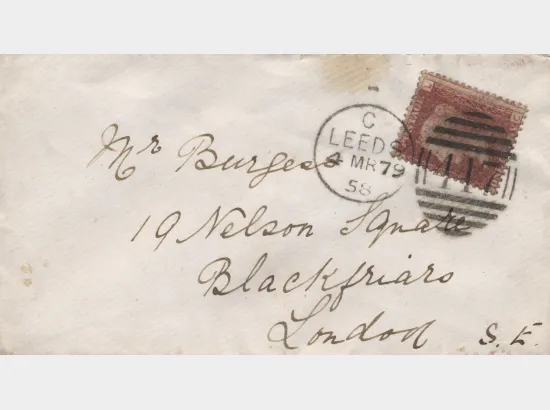 C
LEEDS
4 MR 79
58
447
Mr Burgess
19 Nelson Square
Blackfriars
London S.E.